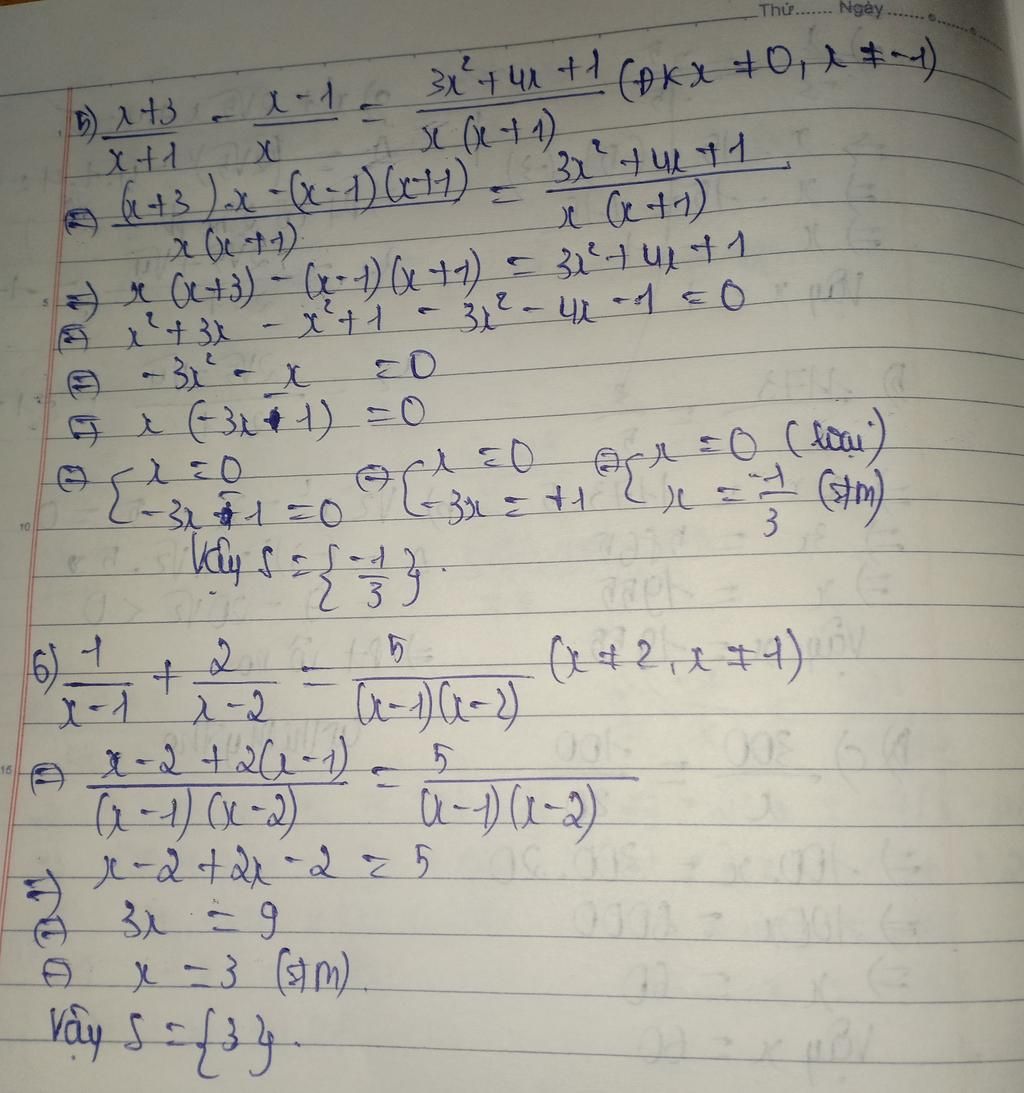 Thứ....... Ngày.......
5) (x+3)/(x+1) - (x-1)/x = (3x²+4x+1)/(x(x+1)) (ĐK x ≠ 0, x ≠ -1)
⇔ ((x+3).x - (x-1)(x+1))/(x(x+1)) = (3x²+4x+1)/(x(x+1))
⇒ x(x+3) - (x-1)(x+1) = 3x²+4x+1
⇔ x²+3x - x²+1 - 3x² - 4x - 1 = 0
⇔ -3x² - x = 0
⇔ x(-3x-1) = 0
⇔ { x = 0 ; -3x - 1 = 0 ⇔ { x = 0 ; -3x = +1 ⇔ { x = 0 (loại) ; x = -1/3 (tm)
Vậy S = {-1/3}.
6) 1/(x-1) + 2/(x-2) = 5/((x-1)(x-2)) (x ≠ 2, x ≠ 1)
⇔ (x-2+2(x-1))/((x-1)(x-2)) = 5/((x-1)(x-2))
⇒ x-2+2x-2 = 5
⇔ 3x = 9
⇔ x = 3 (tm).
Vậy S = {3}.